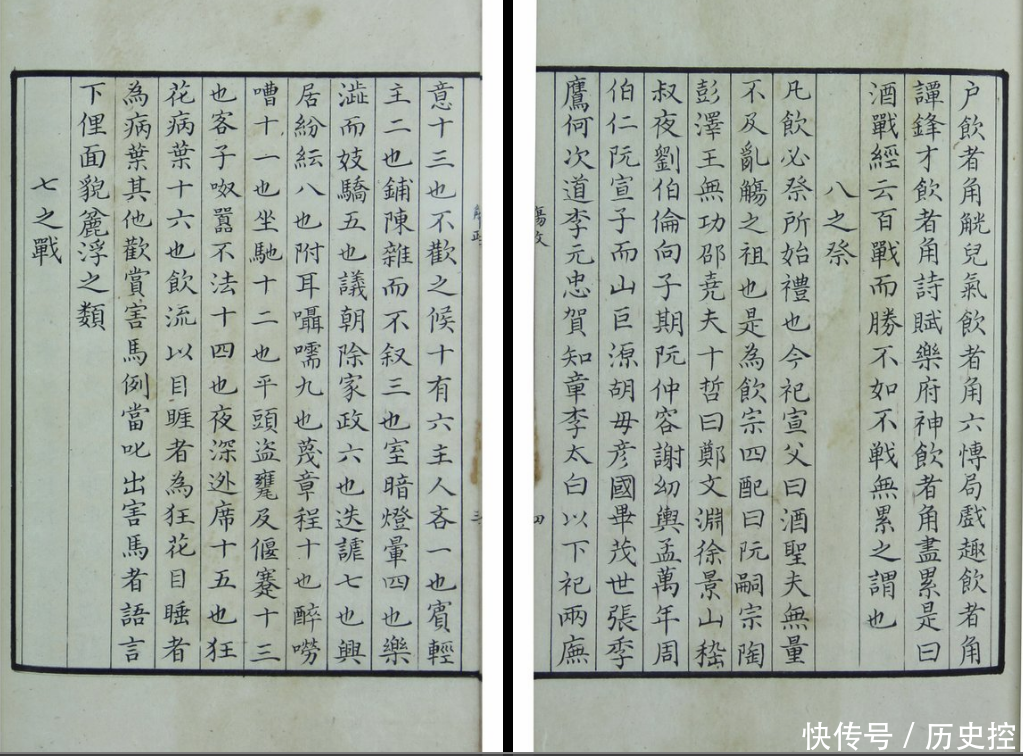 意十三也不歡之候十有六主人吝一也賓輕
主二也鋪陳雜而不叙三也室暗燈暈四也樂
澁而妓驕五也議朝除家政六也迭謔七也興
居紛紜八也附耳囁嚅九也蔑章程十也醉嘮
嘈十一也坐馳十二也平頭盗甕及偃蹇十三
也客子呶嚣不法十四也夜深迯席十五也狂
花病葉十六也飲流以目睚者為狂花目睡者
為病葉其他歡賞害馬例當叱出害馬者語言
下俚面貌麄浮之類
七之戰
觴政
三
户飲者角觥兕氣飲者角六愽局戲趣飲者角
譚鋒才飲者角詩賦樂府神飲者角盡累是曰
酒戰經云百戰而勝不如不戦無累之謂也
八之祭
凡飲必祭所始禮也今祀宣父曰酒聖夫無量
不及亂觴之祖也是為飲宗四配曰阮嗣宗陶
彭澤王無功邵尭夫十哲曰鄭文淵徐景山嵇
叔夜劉伯倫向子期阮仲容謝㓜輿孟萬年周
伯仁阮宣子而山巨源胡毋彦國畢茂世張季
鷹何次道李元忠賀知章李太白以下祀兩廡
觴政
四
快传号 / 历史控